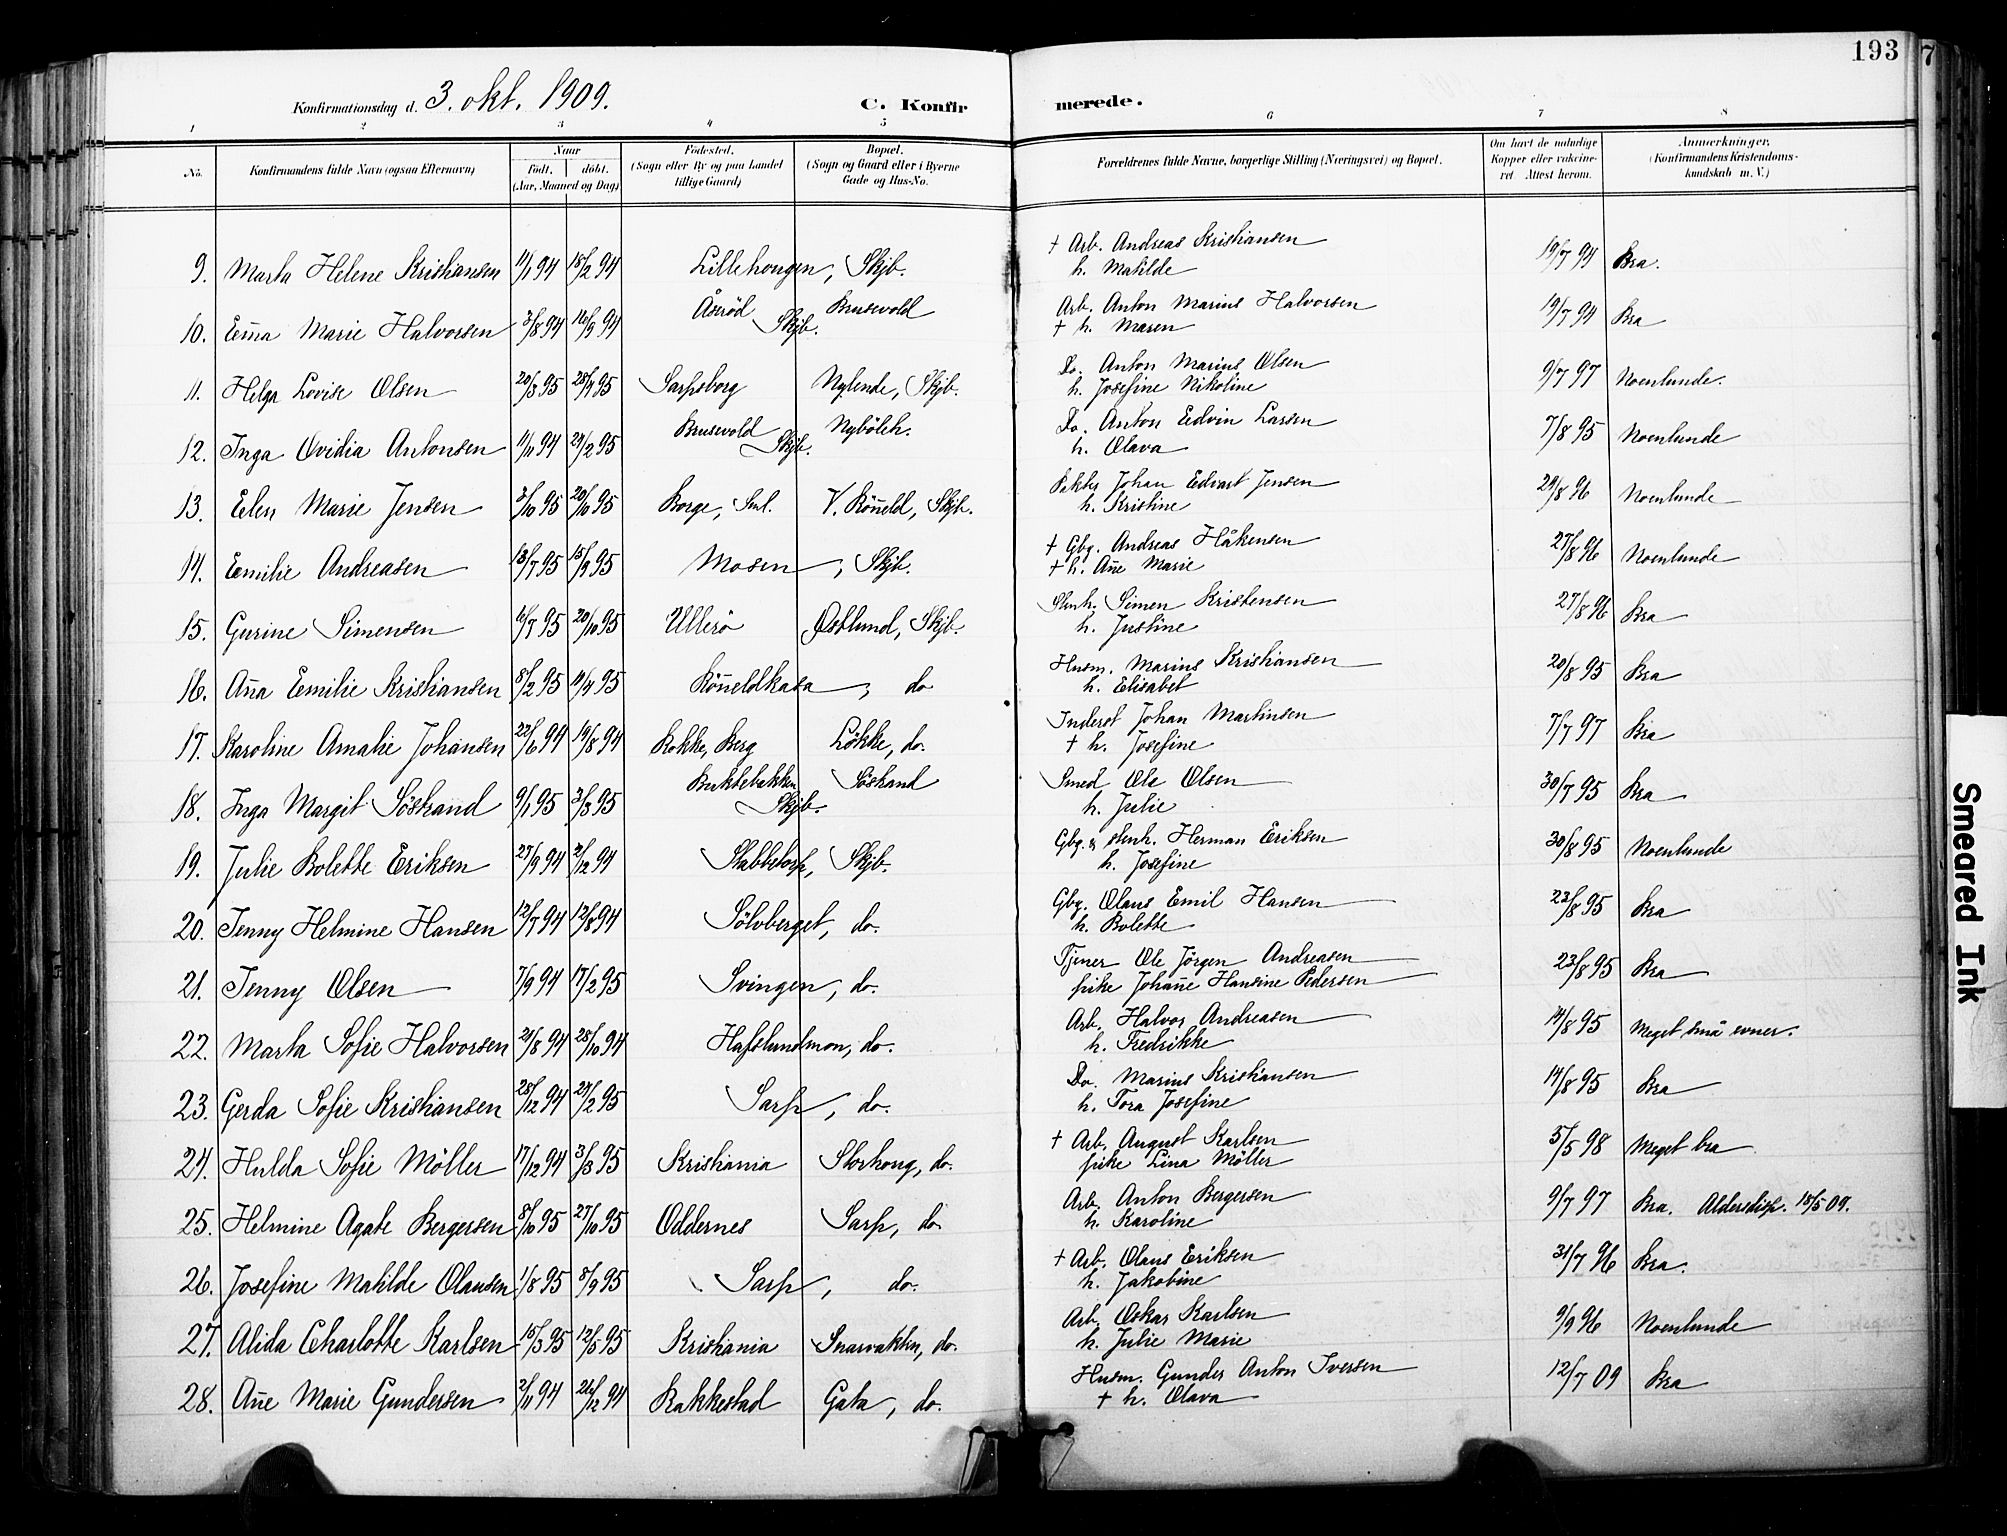 193
7
Konfirmationsdag d. 3. okt. 1909. C. Konfirmerede.
1 2 3 4 5 6 7 8
No. Konfirmandens fulde Navn (ogsaa Efternavn) Naar født. døbt. (Aar, Maaned og Dag) Fødested. (Sogn eller By og paa Landet tillige Gaard) Bopæl. (Sogn og Gaard eller i Byerne Gade og Hus-No. Forældrenes fulde Navne, borgerlige Stilling (Næringsvei) og Bopæl. Om havt de naturlige Kopper eller vaccineret Attest herom. Anmærkninger. (Konfirmandens Kristendomskundskab m. V.)
9. Marta Helene Kristiansen 11/1 94 18/2 94 Lillehougen, Skjb. † Arb. Andreas Kristiansen 19/7 94 Bra.
h. Matilde
10. Em̄a Marie Halvorsen 3/8 94 16/9 94 Åserød Brusevold Skjb. Arb. Anton Marius Halvorsen 19/7 94 Bra
† h. Maren
11. Helga Lovise Olsen 20/3 95 28/4 95 Sarpsborg Nylende, Skjb. Do. Anton Marius Olsen 9/7 97 Noenlunde.
h. Josefine Nikoline
12. Inga Ovidia Antonsen 11/11 94 24/2 95 Brusevold Nyböleh. Skjb. Do. Anton Edvin Larsen 7/8 95 Noenlunde
h. Olava
13. Elen Marie Jensen 3/10 95 20/10 95 Borge, Sml. V. Rön̄eld, Skjb. Pakter Johan Edvart Jensen 29/8 96 Noenlunde
h. Kristine
14. Emilie Andreasen 13/7 95 15/9 95 Mosen, Skjb. † Gbg. Andreas Håkensen 27/8 96 Noenlunde
† h. An̄e Marie
15. Gurine Simensen 16/7 95 20/10 95 Ullerö Østlund, Skjb. Stenh. Simen Kristensen 27/8 96 Bra
h. Justine
16. An̄a Emilie Kristiansen 8/2 95 14/4 95 Rön̄eldkasa, do Husm. Marius Kristiansen 20/8 95 Bra
h. Elisabet
17. Karoline Amalie Johansen 22/6 94 19/8 94 Rokke, Berg Løkke, do. Inderst Johan Martinsen 7/7 97 Bra
† h. Josefine
18. Inga Margit Söstrand 9/1 95 3/3 95 Buktebakken Söstrand Skjb. Smed Ole Olsen 30/7 95 Bra
h. Julie
19. Julie Bolette Eriksen 27/9 94 2/12 94 Stabbetorp, Skjb. Gbg. & stenh. Herman Eriksen 30/8 95 Noenlunde
h. Josefine
20. Jenny Helmine Hansen 12/7 94 12/8 94 Sölvberget, do. Gbg. Olaus Emil Hansen 23/8 95 Bra
h. Bolette
21. Jenny Olsen 7/9 94 17/2 95 Svingen, do. Tjener Ole Jörgen Andreasen 23/8 95 Bra
pike Johan̄e Hansine Pedersen
22. Marta Sofie Halvorsen 21/8 94 28/10 94 Hafslundmon, do. Arb. Halvor Andreasen 14/8 95 Meget små evner.
h. Fredrikke
23. Gerda Sofie Kristiansen 28/12 94 24/2 95 Sarp, do. Do. Marius Kristiansen 14/8 95 Bra
h. Tora Josefine
24. Hulda Sofie Möller 17/12 94 3/3 95 Kristiania Storhoug, do. † Arb. August Karlsen 5/5 98 Meget bra
pike Lina Möller
25. Helmine Agate Bergersen 8/10 95 27/10 95 Oddernes Sarp, do Arb. Anton Bergersen 9/7 97 Bra. Aldersdisp. 18/5 09.
h. Karoline
26. Josefine Matilde Olausen 1/8 95 8/9 95 Sarp, do. † Arb. Olaus Eriksen 31/7 96 Bra.
h. Jakobine
27. Alida Charlotte Karlsen 15/3 95 12/5 95 Kristiania Snarvakken, do. Arb. Oskar Karlsen 9/9 96 Noenlunde
h. Julie Marie
28. An̄e Marie Gundersen 2/11 94 26/12 94 Rakkestad Gata, do. Husm. Gunder Anton Iversen 12/7 09 Bra
† h. Olava
Smeared Ink